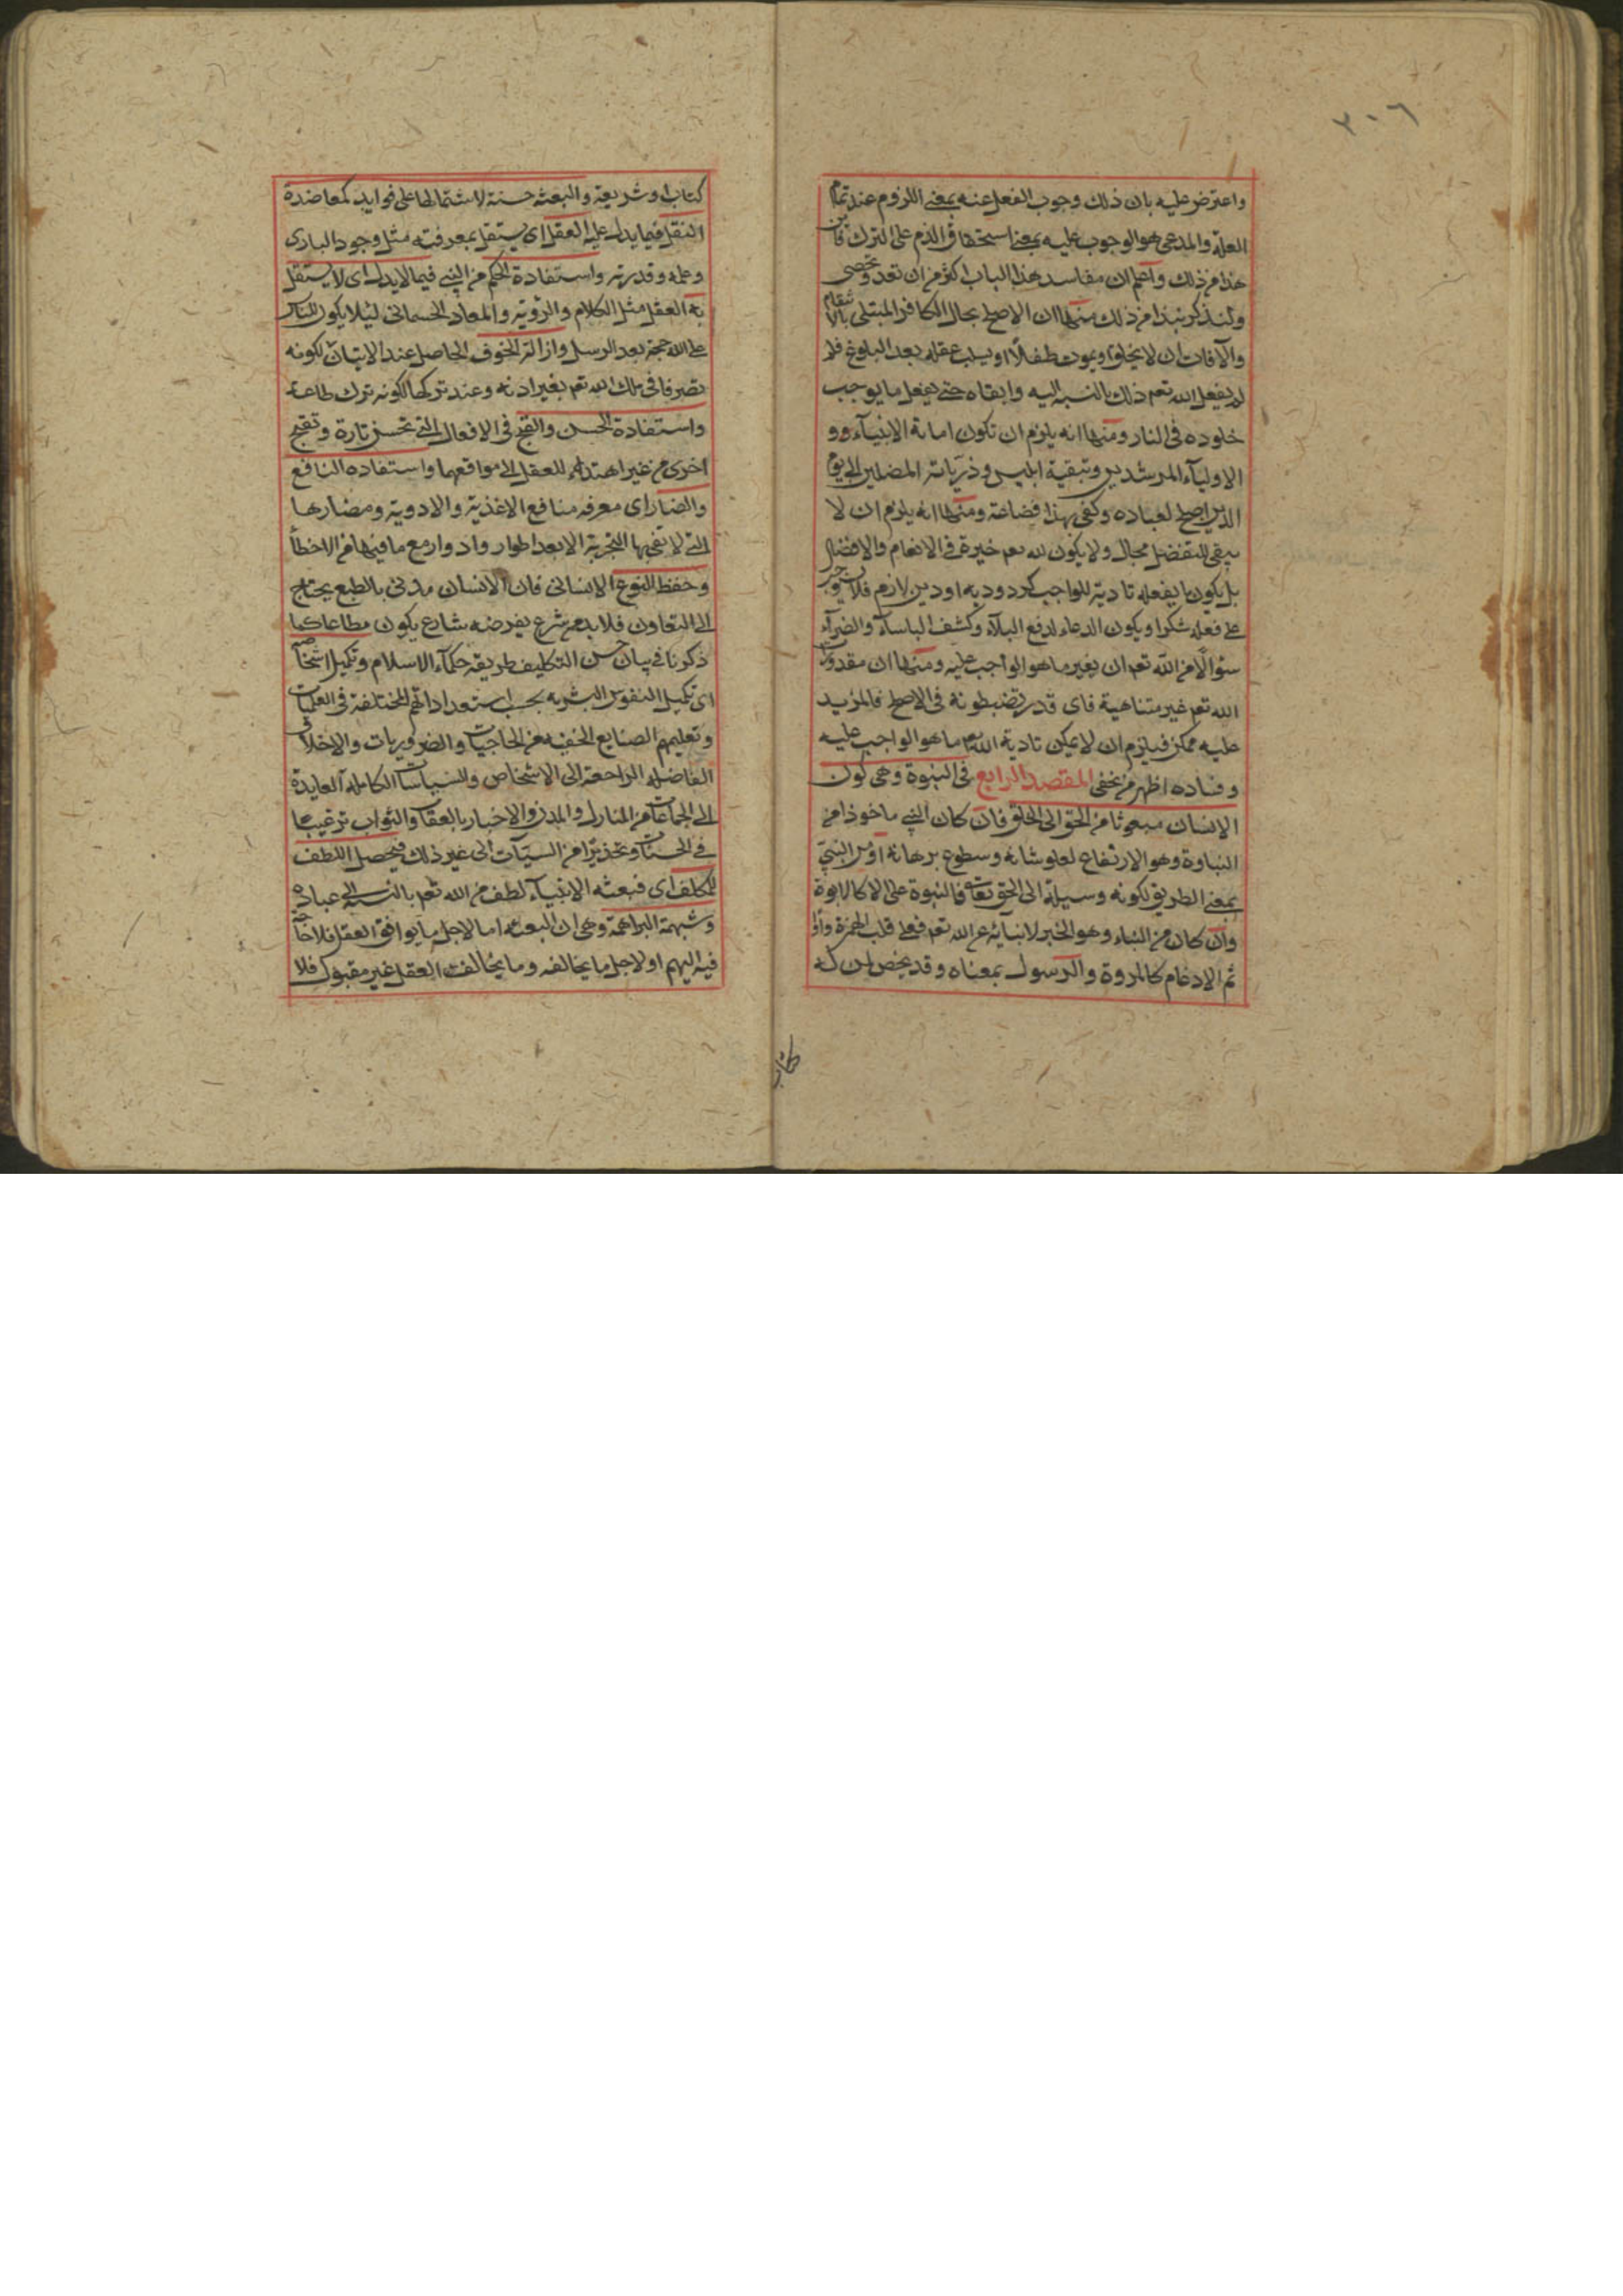 ٢٠٦
واعترض عليه بان ذلك وجوب الفعل عنه بمعنى اللزوم عند تمام
العلة والمدعى هو الوجوب عليه بمعنى استحقاق الذم على الترك فاين
هذا من ذلك واعلم ان مفاسد هذا الباب اكثر من ان تعد وتحصى
ولنذكر نبذا من ذلك منها ان الاصلح بحال الكافر المبتلى بالاسقام
والآفات ان لا يخلق او يموت طفلا او يسلب عقله بعد البلوغ فلم
لم يفعل الله تعم ذلك بالنسبة اليه وابقاه حتى يفعل ما يوجب
خلوده في النار ومنها انه يلزم ان تكون اماتة الانبياء وو
الاولياء المرشدين وتبقية ابليس وذرياته المضلين الى يوم
الدين اصلح لعباده وكفى بهذا فضاعة ومنها انه يلزم ان لا
يبقى للتفضل مجال ولا يكون لله تعم خيرة في الانعام والافضال
بل يكون ما يفعله تادية للواجب كرد وديعه او دين لازم فلا يستوجب
على فعله شكرا ويكون الدعاء لدفع البلاء وكشف الباساء والضراء
سؤالا من الله تعم ان يغير ما هو الواجب عليه ومنها ان مقدورات
الله تعم غير متناهية فاى قدر تضبطونه في الاصلح فالمزيد
عليه ممكن فيلزم ان لا يمكن تادية الله تعم ما هو الواجب عليه
وفساده اظهر من يخفى المقصد الرابع في النبوة وهى كون
الانسان مبعوثا من الحق الى الخلق فان كان النبي ماخوذا من
النباوة وهو الارتفاع لعلو شانه وسطوع برهانه او من النبيّ
بمعنى الطريق لكونه وسيلة الى الحق تعالى فالنبوة على الاصل كالابوة
وان كان من النباء وهو الخبر لانبائه عن الله تعم فعلى قلب الهمزة واوا
ثم الادغام كالمروة والرسول بمعناه وقد يخص لمن له
كتاب
كتاب او شريعة والبعثه حسنة لاشتمالها على فوايد كمعاضدة
النقل فيما يدل عليه العقل اى يستقل بمعرفته مثل وجود البارى
وعلمه وقدرته واستفادة الحكم من النبي فيما لا يدل اى لا يستقل
به العقل مثل الكلام والرؤية والمعاد الجسمانى لئلا يكون للناس
على الله حجة بعد الرسل وازالة الخوف الحاصل عند الاتيان لكونه
تصرفا في ملك الله تعم بغير اذنه وعند تركها لكونه ترك طاعة
واستفادة الحسن والقبح في الافعال التى تحسن تارة وتقبح
اخرى من غير اهتداء للعقل الى مواقعهما واستفاده النافع
والضار اى معرفه منافع الاغذية والادوية ومضارها
التى لا تفى بها التجربة الا بعد اطوار وادوار مع ما فيها من الاخطأ
وحفظ النوع الانسانى فان الانسان مدنى بالطبع يحتاج
الى التعاون فلا بد من شرع يفرضه شارع يكون مطاعا كما
ذكرنا في بيان حسن التكليف طريقه حكماء الاسلام وتكميل اشخاصه
اى تكميل النفوس البشريه بحسب استعداداتهم المختلفة في العلميات
وتعليمهم الصنايع الخفيه من الحاجيات والضروريات والاخلاق
الفاضله الراجعة الى الاشخاص والسياسات الكامله العايدة
الى الجماعات من المنازل والمدن والاخبار بالعقاب والثواب ترغيبا
في الحسنات وتحذيرا من السيآت الى غير ذلك فيحصل اللطف
للمكلف اى فبعثه الانبياء لطف من الله تعم بالنسبة الى عباده
وشبهة البراهمة وهى ان البعثه اما لاجل ما يوافق العقل فلا حاجة
فيه اليهم او لاجل ما يخالفه وما يخالف العقل غير مقبول فلا